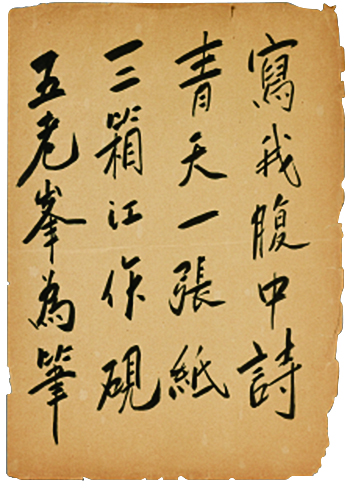 五老峯為筆
三箱江作硯
青天一張紙
寫我腹中詩